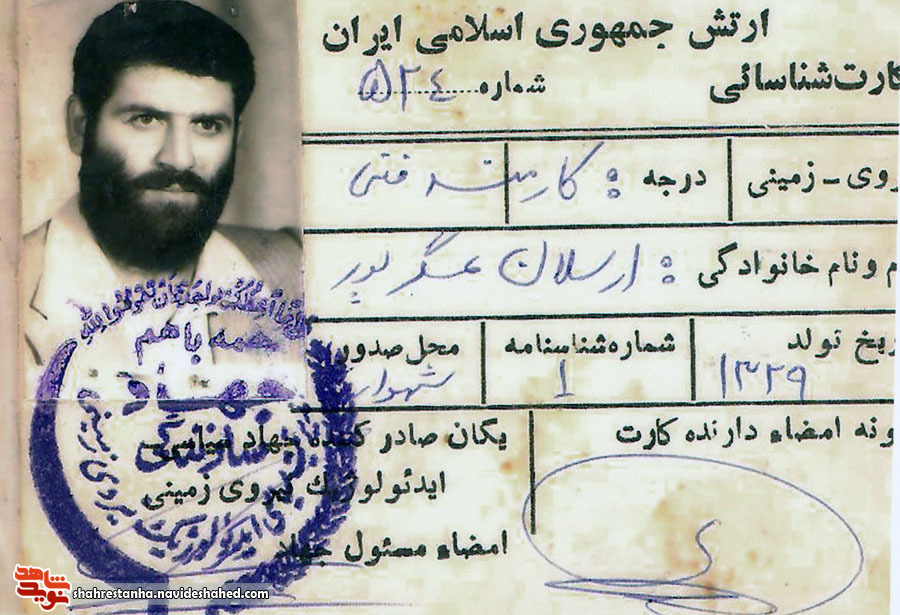 ارتش جمهوری اسلامی ایران
کارت شناسائی
شماره ۵۲۴
نیروی - زمینی درجه : کارمند فنی
نام و نام خانوادگی : ارسلان عسگرپور
تاریخ تولد ۱۳۲۹ شماره شناسنامه ۱ محل صدور
نمونه امضاء دارنده کارت
یگان صادر کننده جهاد سیاسی
ایدئولوژیک نیروی زمینی
امضاء مسئول جهاد
همه با هم
جهاد
نوید شاهد
shahrestanha.navideshahed.com